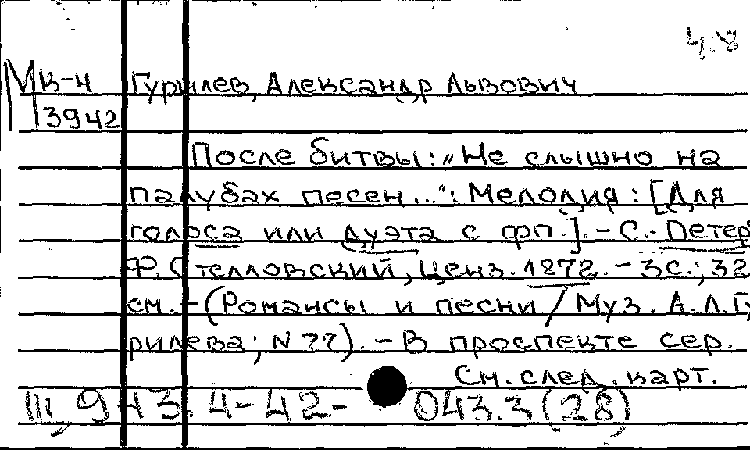 4.8
Мк-ч Гурилев, Александр Львович
13942
После битвы: „Не слышно на
палубах песен..": Мелодия: [Для
голоса или дуэта с фп.]. - С.- Петер
Ф. Стелловский, ценз. 1872. - 3 с.; 32
см. - (Романсы и песни / Муз. А.Л.Г
рилева; N 77). - В проспекте сер.
См. след. карт.
9 43.4-42- 043.3(28)